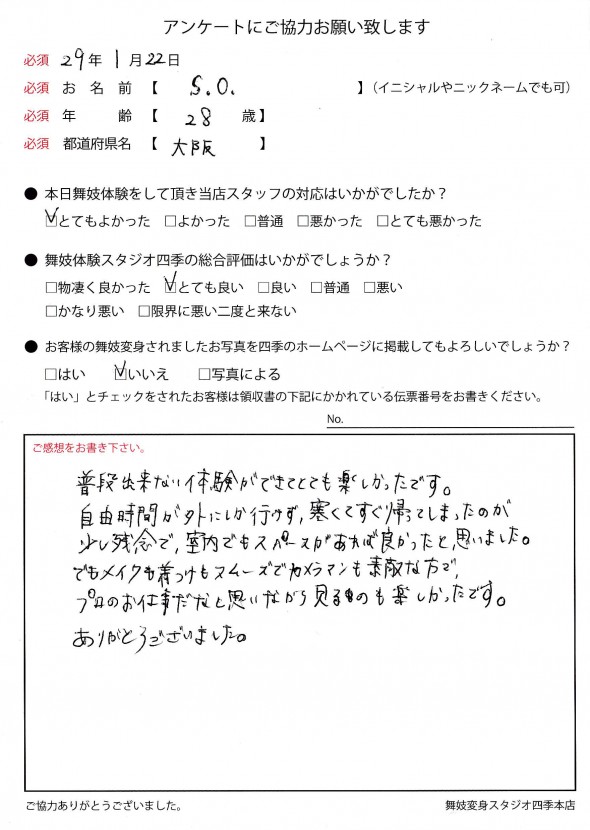 アンケートにご協力お願い致します
必須 29年 1月22日
必須 お名前 【 S.O. 】（イニシャルやニックネームでも可）
必須 年齢 【 28 歳】
必須 都道府県名 【 大阪 】
● 本日舞妓体験をして頂き当店スタッフの対応はいかがでしたか？
☑とてもよかった □よかった □普通 □悪かった □とても悪かった
● 舞妓体験スタジオ四季の総合評価はいかがでしょうか？
□物凄く良かった ☑とても良い □良い □普通 □悪い
□かなり悪い □限界に悪い二度と来ない
● お客様の舞妓変身されましたお写真を四季のホームページに掲載してもよろしいでしょうか？
□はい ☑いいえ □写真による
「はい」とチェックをされたお客様は領収書の下記にかかれている伝票番号をお書きください。
No.
ご感想をお書き下さい。
普段出来ない体験ができてとても楽しかったです。
自由時間が外にしか行けず、寒くてすぐ帰ってしまったのが
少し残念で、室内でもスペースがあれば良かったと思いました。
でもメイクも着つけもスムーズでカメラマンも素敵な方で、
プロのお仕事だなと思いながら見るものも楽しかったです。
ありがとうございました。
ご協力ありがとうございました。
舞妓変身スタジオ四季本店